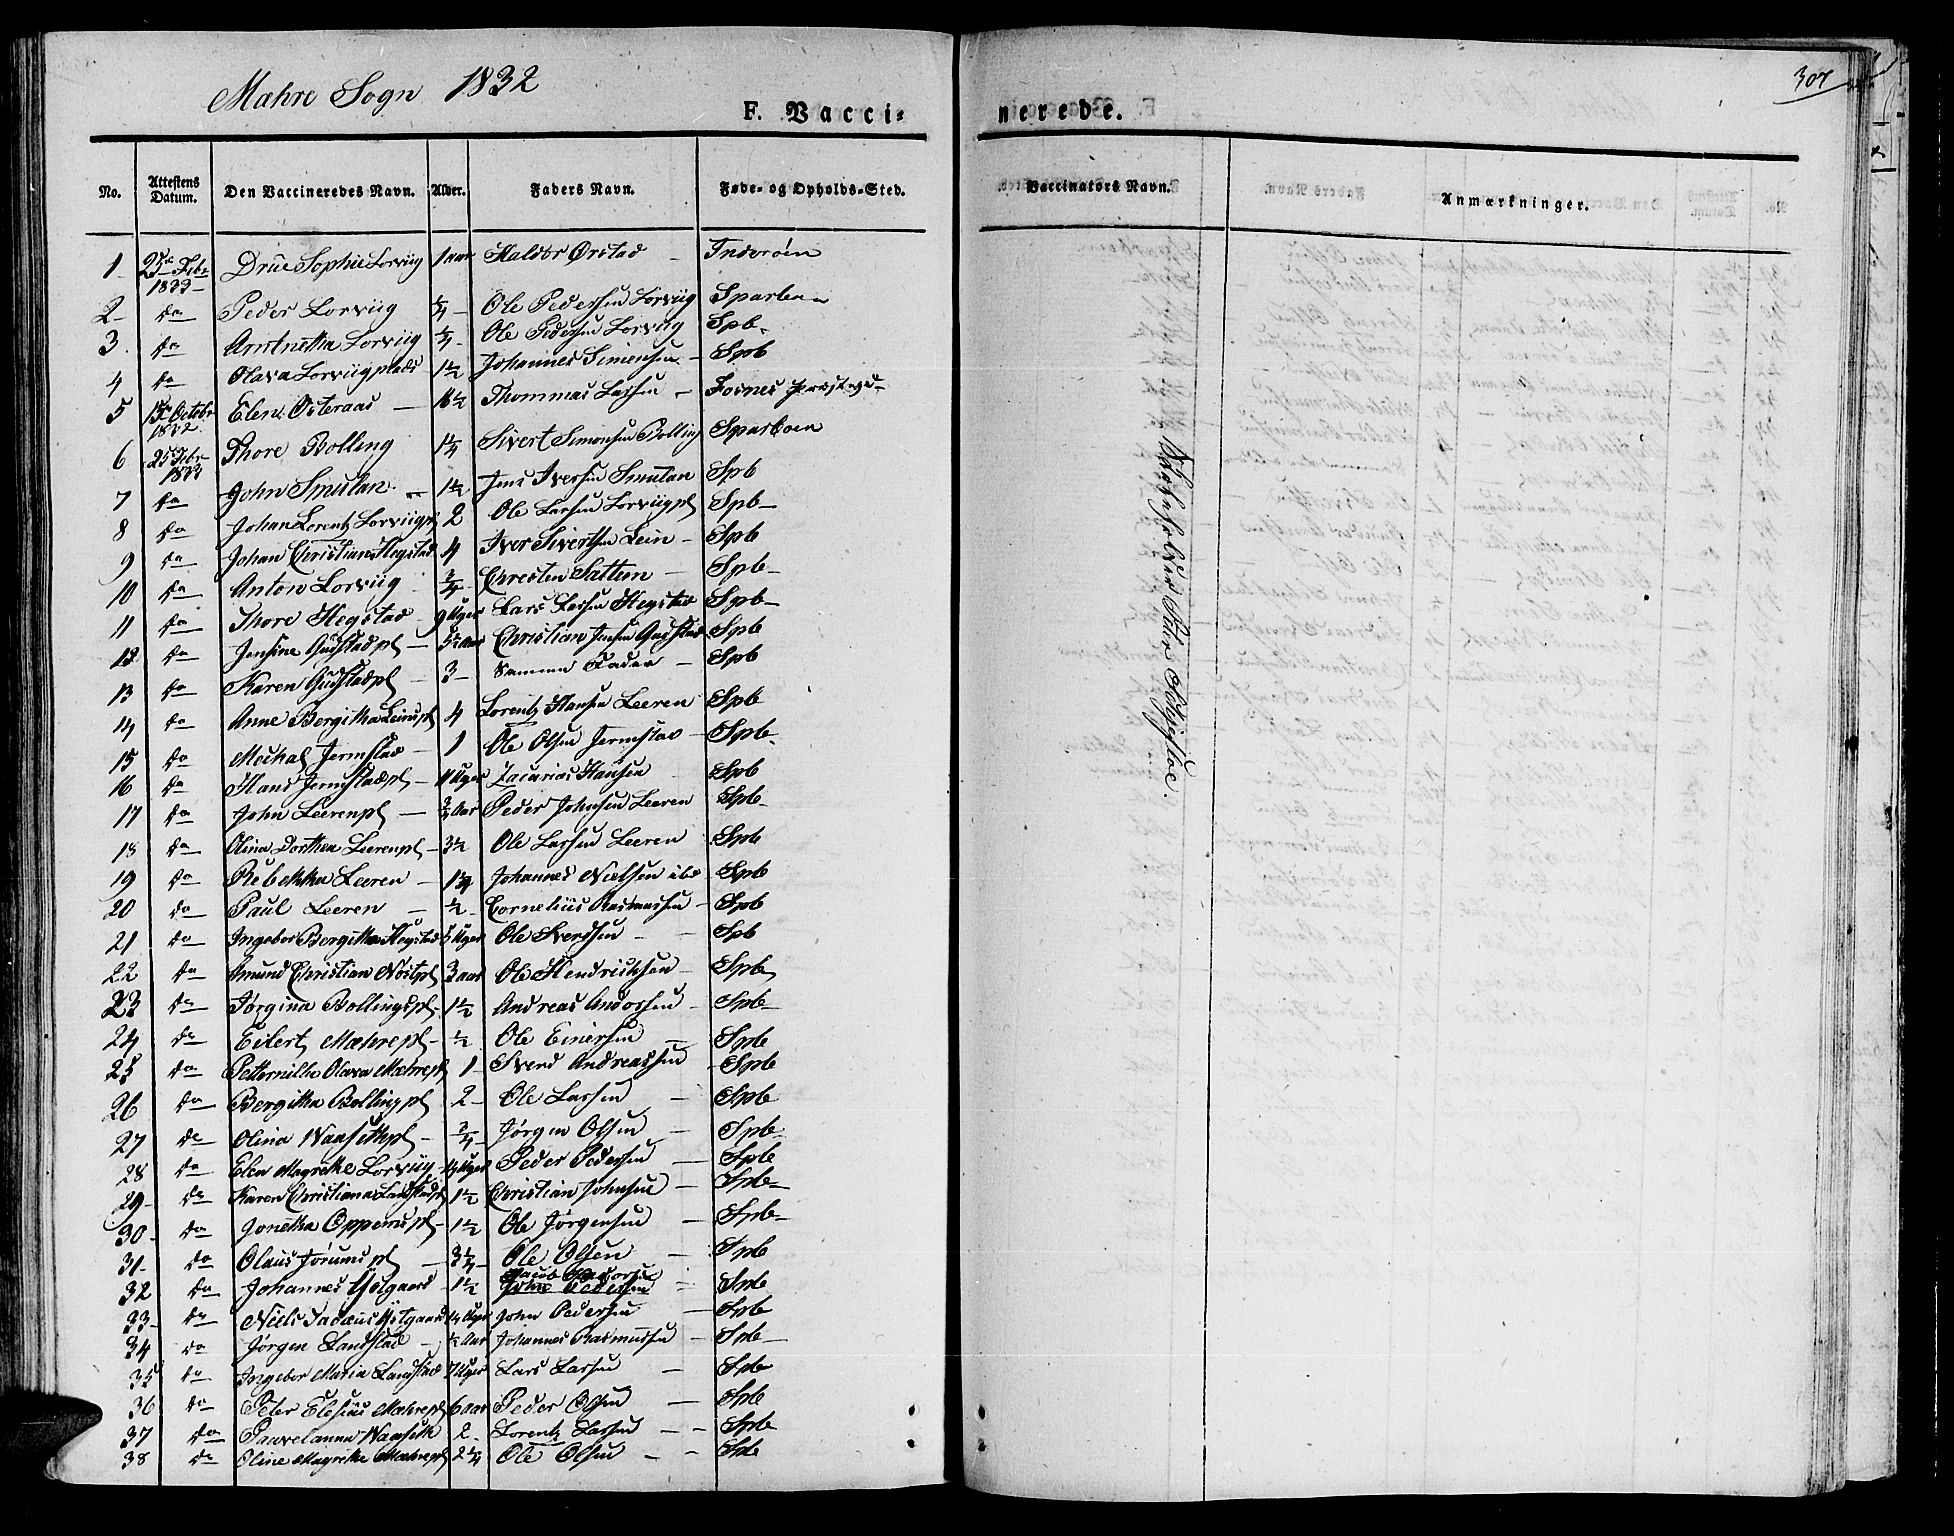 Mahre Sogn 1832
307
F. Vacci-
nerede.
No. Attestens Datum. Den Vaccineredes Navn. Alder. Faders Navn. Føde- og Opholds-Sted. Vaccinators Navn. Anmærkninger.
1 25de Febr 1833 Sophie Lorviig 1 aar Haldor Ørstad Inderøen
2 do Peder Lorviig 1/4 Ole Pedersen Lorviig Sparboen
3 do Lorviig Ole Pedersen Lorviig Spb
4 do Olava Lorviigplads 1 1/2 Johannes Simensen Spb
5 15de Octobr 1832 Elen Østeraas 16 1/2 Thommas Lassen Fosnes
6 25de Febr 1833 Thore Bolling 1 1/4 Sivert Simonsen Bolling Sparboen
7 do John Smulan 1 1/2 Jens Iversen Smulan Spb
8 do Johan Lorentz Lorviigpl 2 Ole Larsen Lorviigpl Spb
9 do Johan Christian Hegstad 4 Iver Sivertsen Lein Spb
10 do Anton Lorviig 3/4 Christen Sattem Spb
11 do Thore Hegstad 9 Uger Lars Larsen Hegstad Spb
12 do Jensine Gudstadpl 5 1/2 aar Christian Jensen Gudstad Spb
13 do Karen Gudstadpl 3 Samme Fader Spb
14 do Anne Bergitha Leinspl 4 Lorentz Hansen Leeren Spb
15 do Mechal Jermstad 1 Ole Olsen Jermstad Spb
16 do Hans Jermstadpl 11 Uger Zacarias Hansen Spb
17 do John Leerenpl 3/4 Aar Peder Johnsen Leeren Spb
18 do Olina Dorthea Leerenpl 3 1/2 Ole Larsen Leeren Spb
19 do Rebekka Leeren 1 3/4 Johannes Nielsen ibd Spb
20 do Paul Leeren 1/2 Cornelius Rasmussen Spb
21 do Ingebor Bergitha Hegstad Uger Ole Svendsen Spb
22 do Amund Christian Nostpl 3 aar Ole Hendrichsen Spb
23 do Jørgina Bollingspl 1 1/2 Andreas Andorsen Spb
24 do Eilert Mæhrepl 1/2 Ole Einersen Spb
25 do Petternilla Olava Mæhrepl 1 Svend Andreassen Spb
26 do Bergitha Bollingpl 2 Ole Larsen Spb
27 do Olina Waasethpl 3/4 Jørgen Olsen Spb
28 do Elen Magrethe Lorviig 14 Uger Peder Pedersen Spb
29 do Karen Christiana Landstadpl 1 1/2 Christian Johnsen Spb
30 do Jonetha Oppemspl 1 1/2 Ole Jørgensen Spb
31 do Olaus Jørumspl 3 1/4 Ole Olsen Spb
32 do Johannes Ystgaard 1 1/2 Jacob Andorsen John Pedersen Spb
33 do Niels Ystgaard 14 Uger John Pedersen Spb
34 do Jørgen Landstad 1/2 Aar Johannes Rasmussen Spb
35 do Ingebor Maria Landstad 7 Uger Lars Larsen Spb
36 do Peter Elesius Mæhrepl 6 aar Peder Olsen Spb
37 do Paavelanna Waaseth 2 Lorentz Larsen Spb
38 do Oline Magrethe Mæhrepl 2 1/4 Ole Olsen Spb